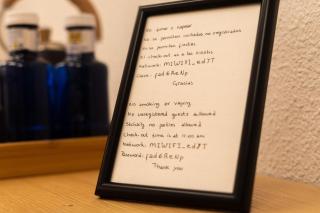 No fumar o vapear
No se permiten invitados no registrados
No se permiten fiestas
El check-out es a las
Network: MIWIFI_edJT
Clave: fad6ReNp
Gracias
No smoking or vaping
No unregistered guests allowed
Strictly no parties allowed
Check-out time is at 11:00 am
Network: MIWIFI_edJT
Password: fad6ReNp
Thank you